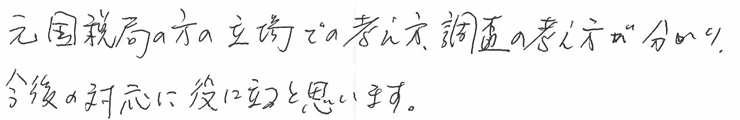 元国税局の方の立場での考え方、調査の考え方が分かり、
今後の対応に役に立つと思います。